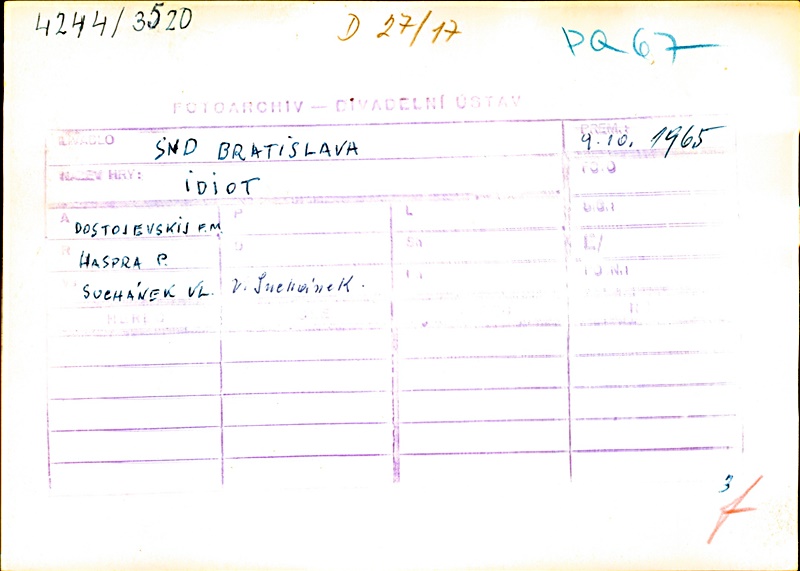 4244/3520 D 27/17 PQ 67
FOTOARCHIV — DIVADELNÍ ÚSTAV
DIVADLO SND BRATISLAVA PREM.: 9.10. 1965
NÁZEV HRY: IDIOT
A DOSTOJEVSKIJ F.M P L
R HASPRA P.
SUCHÁNEK VL. V. Suchánek.
3